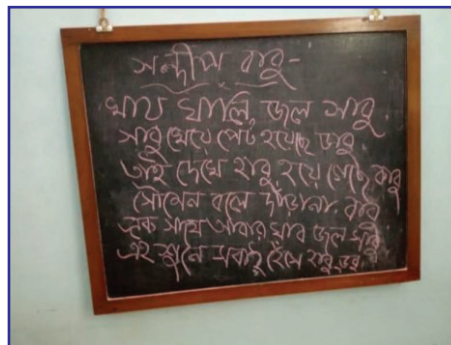 সন্দীপ বাবু-
খায় খালি জল সাবু
সাবু খেয়ে পেট হয়েছে ডাবু
তাই দেখে হাবু হয়ে গেছে কাবু
সৌমেন বলে দাঁড়ানা বাবু
এক সাথে আবার খাব জল সাবু
এই শুনে সবাই হেঁসে হাবু ডবু